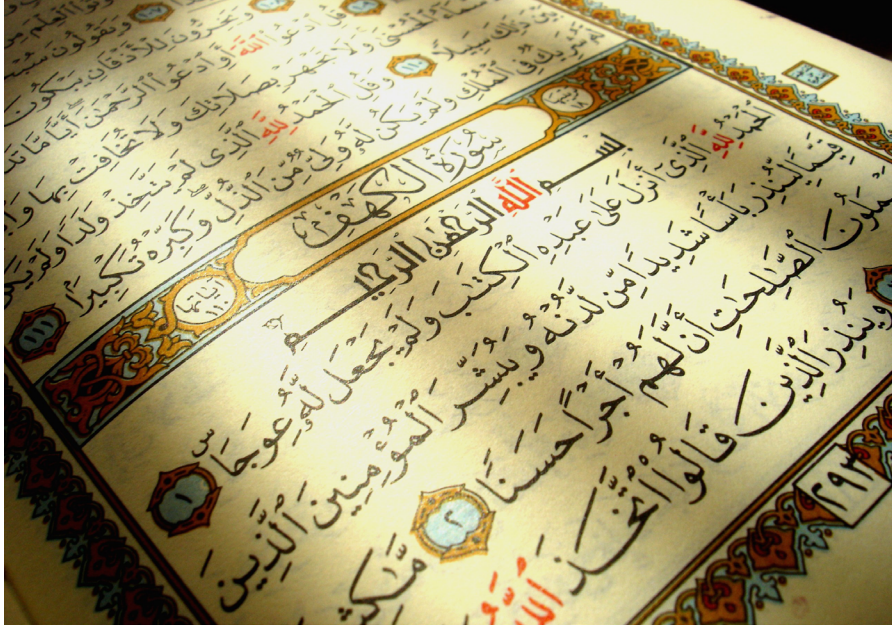 وَيَقُولُونَ
وَيَخِرُّونَ لِلْأَذْقَانِ يَبْكُونَ
قُلِ ٱدْعُوا۟ ٱللَّهَ أَوِ ٱدْعُوا۟ ٱلرَّحْمَٰنَ أَيًّا مَّا
ٱلْحُسْنَىٰ وَلَا تَجْهَرْ بِصَلَاتِكَ وَلَا تُخَافِتْ بِهَا
بَيْنَ ذَٰلِكَ سَبِيلًا ١١٠ وَقُلِ ٱلْحَمْدُ لِلَّهِ ٱلَّذِى لَمْ يَتَّخِذْ وَلَدًا وَلَمْ
شَرِيكٌ فِى ٱلْمُلْكِ وَلَمْ يَكُن لَّهُۥ وَلِىٌّ مِّنَ ٱلذُّلِّ وَكَبِّرْهُ تَكْبِيرًۢا ١١١
سُورَةُ ٱلْكَهْفِ
بِسْمِ ٱللَّهِ ٱلرَّحْمَٰنِ ٱلرَّحِيمِ
ٱلْحَمْدُ لِلَّهِ ٱلَّذِىٓ أَنزَلَ عَلَىٰ عَبْدِهِ ٱلْكِتَٰبَ وَلَمْ يَجْعَل لَّهُۥ عِوَجَاۜ ١
قَيِّمًا لِّيُنذِرَ بَأْسًا شَدِيدًا مِّن لَّدُنْهُ وَيُبَشِّرَ ٱلْمُؤْمِنِينَ ٱلَّذِينَ
يَعْمَلُونَ ٱلصَّٰلِحَٰتِ أَنَّ لَهُمْ أَجْرًا حَسَنًا ٢ مَّٰكِثِينَ
وَيُنذِرَ ٱلَّذِينَ قَالُوا۟ ٱتَّخَذَ ٱللَّهُ
٢٩٣